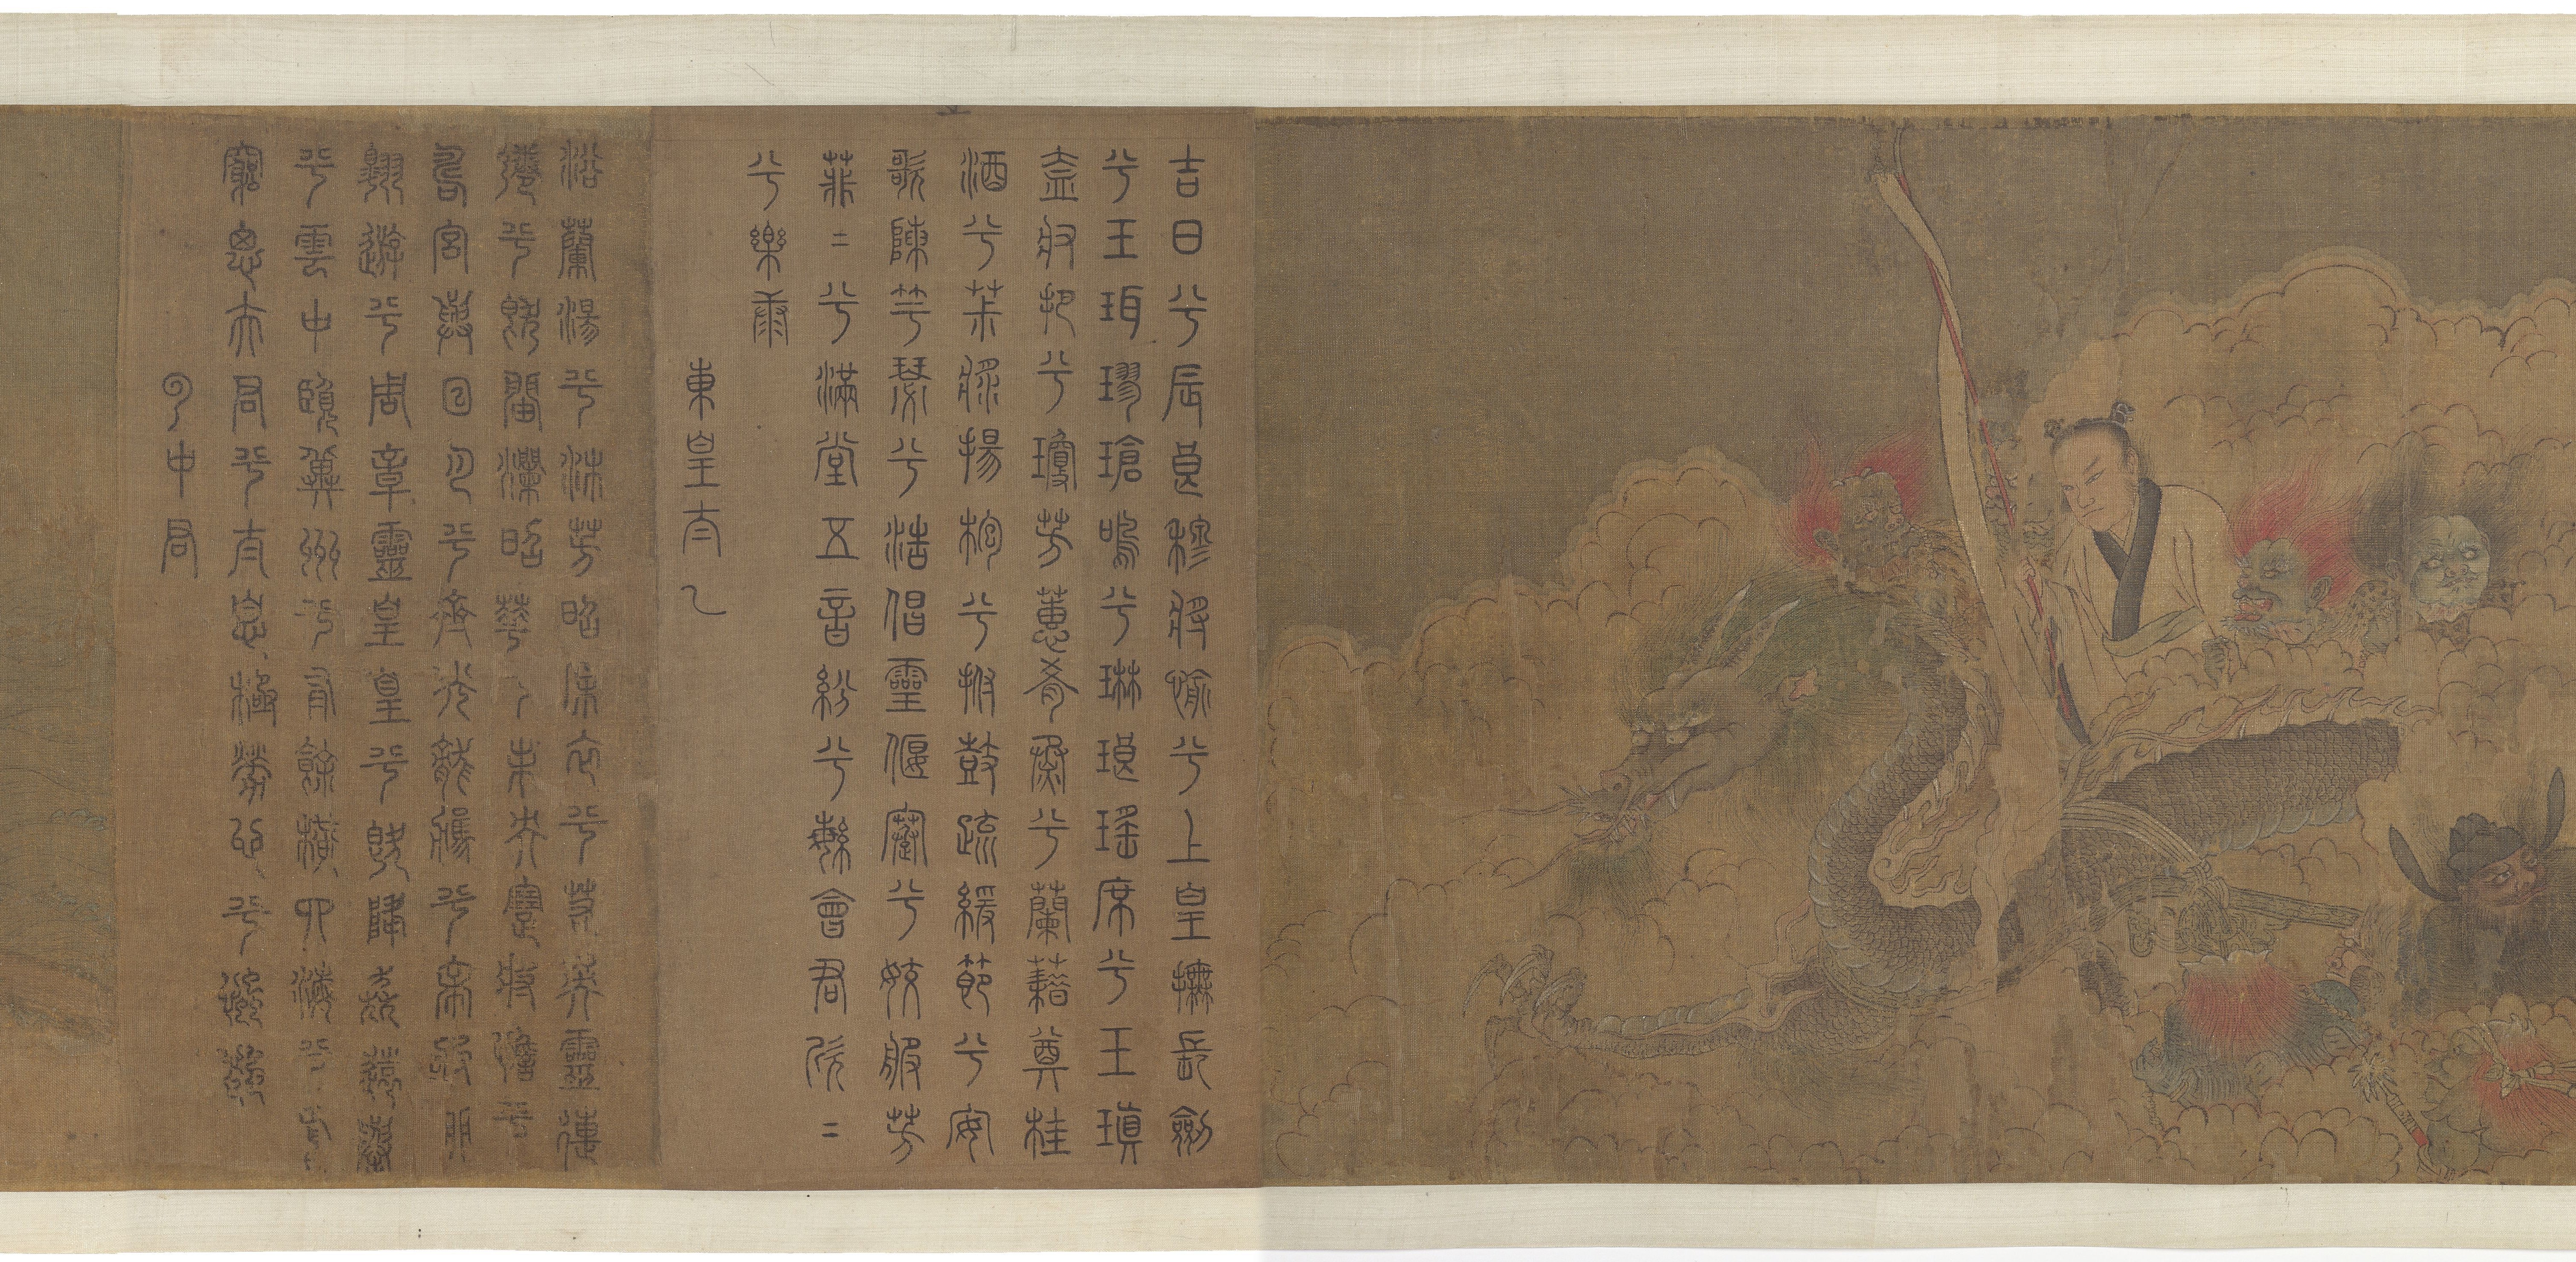 吉日兮辰良穆將愉兮上皇撫長劍
兮玉珥璆瑲鳴兮琳琅瑤席兮玉瑱
盍將把兮瓊芳蕙肴蒸兮蘭藉奠桂
酒兮茮漿揚枹兮拊鼓疏緩節兮安
歌陳竽瑟兮浩倡靈偃蹇兮姣服芳
菲=兮滿堂五音紛兮繁會君欣=
兮樂康
東皇太乙
浴蘭湯兮沐芳昭采衣兮若英靈連
蜷兮既留爛昭華兮未央蹇將憺兮
壽宮與日月兮齊光龍駕兮帝服聊
翱遊兮周章靈皇皇兮既降猋遠舉
兮雲中覽冀州兮有餘橫四海兮焉
窮思夫君兮太息極勞心兮
雲中君